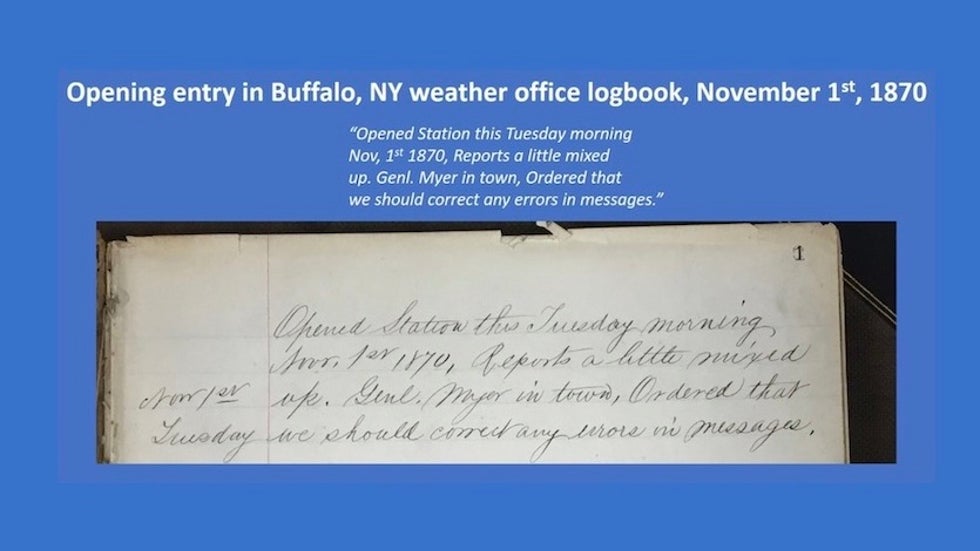 Opening entry in Buffalo, NY weather office logbook, November 1st, 1870
“Opened Station this Tuesday morning
Nov, 1st 1870, Reports a little mixed
up. Genl. Myer in town, Ordered that
we should correct any errors in messages.”
1
Opened Station this Tuesday morning
Nov. 1st 1870, Reports a little mixed
Nov 1st up. Genl. Myer in town, Ordered that
Tuesday we should correct any errors in messages.